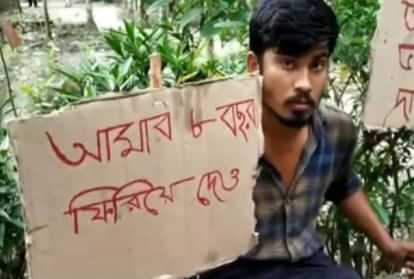 আমার ৮ বছর
ফিরিয়ে দেও